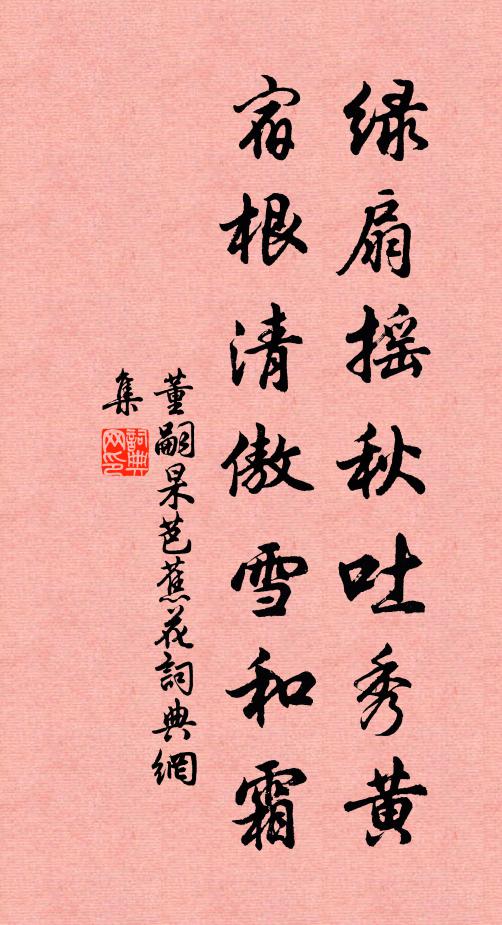 绿扇摇秋吐秀黄
宿根清傲雪和霜
董嗣杲芭蕉花詞典網
集
詞典
网印